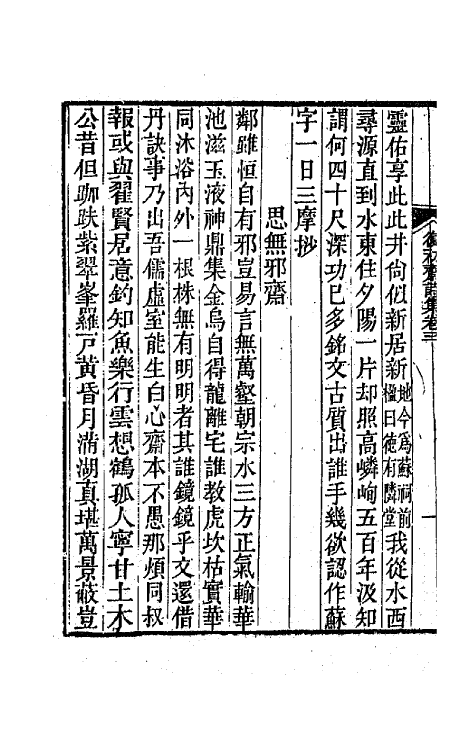 靈佑享此此井尙似新居新地今爲蘇祠前楹曰德有鄰堂我從水西
尋源直到水東住夕陽一片却照高嶙峋五百年汲知
謂何四十尺深功已多銘文古質出誰手幾欲認作蘇
字一日三摩抄
思無邪齋
鄰雖恒自有邪豈易言無萬壑朝宗水三方正氣輸華
池滋玉液神鼎集金烏自得龍離宅誰教虎坎枯實華
同沐浴內外一根株無有明明者其誰鏡鏡乎文還借
丹訣事乃出吾儒虛室能生白心齋本不愚那煩同叔
報或與翟賢居意釣知魚樂行雲想鶴孤人寧甘土木
公昔但跏趺紫翠峯羅戸黃昏月滿湖真堪萬景蔽豈